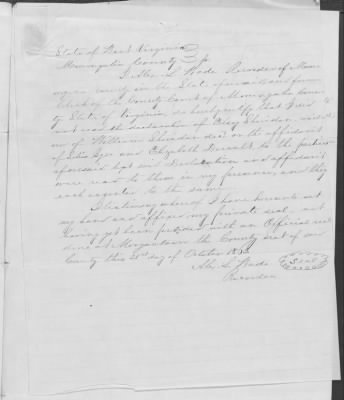 State of West Virginia
Monongalia County
I Alex L Wade Recorder of Monon
galia County in the State aforesaid and former
Clerk of the County Court of Monongalia Coun
ty State of Virginia, do hereby certify that I did
not read the declaration of Mary Sheridan wid
ow of William Sheridan decd or the affidavit
of and Elizabeth to the parties
aforesaid but said Declaration and affidavit
were read to them in my presence, and they
each to the same
In testimony whereof I have hereunto set
my hand and affixed my private seal not
having yet been furnished with an Official seal
done at Morgantown the County seat of said
County this 21st day of October
Alex L Wade Seal
Recorder